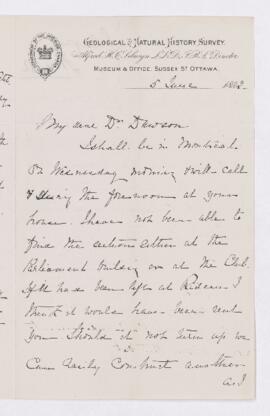 GEOLOGICAL & NATURAL HISTORY SURVEY.
Alfred R. C. Selwyn, L.L.D., F.R.S., Director.
MUSEUM & OFFICE, SUSSEX ST. OTTAWA.
5 June 188
My dear Dr. Dawson
I shall be in Montreal
on Wednesday morning & will call
during the forenoon at your
house. I have not been able to
find the sections either at the
Parliament building or at the Club.
If it has been left at I
think it would have been sent
you. Should it not turn up we
can easily construct another
as I